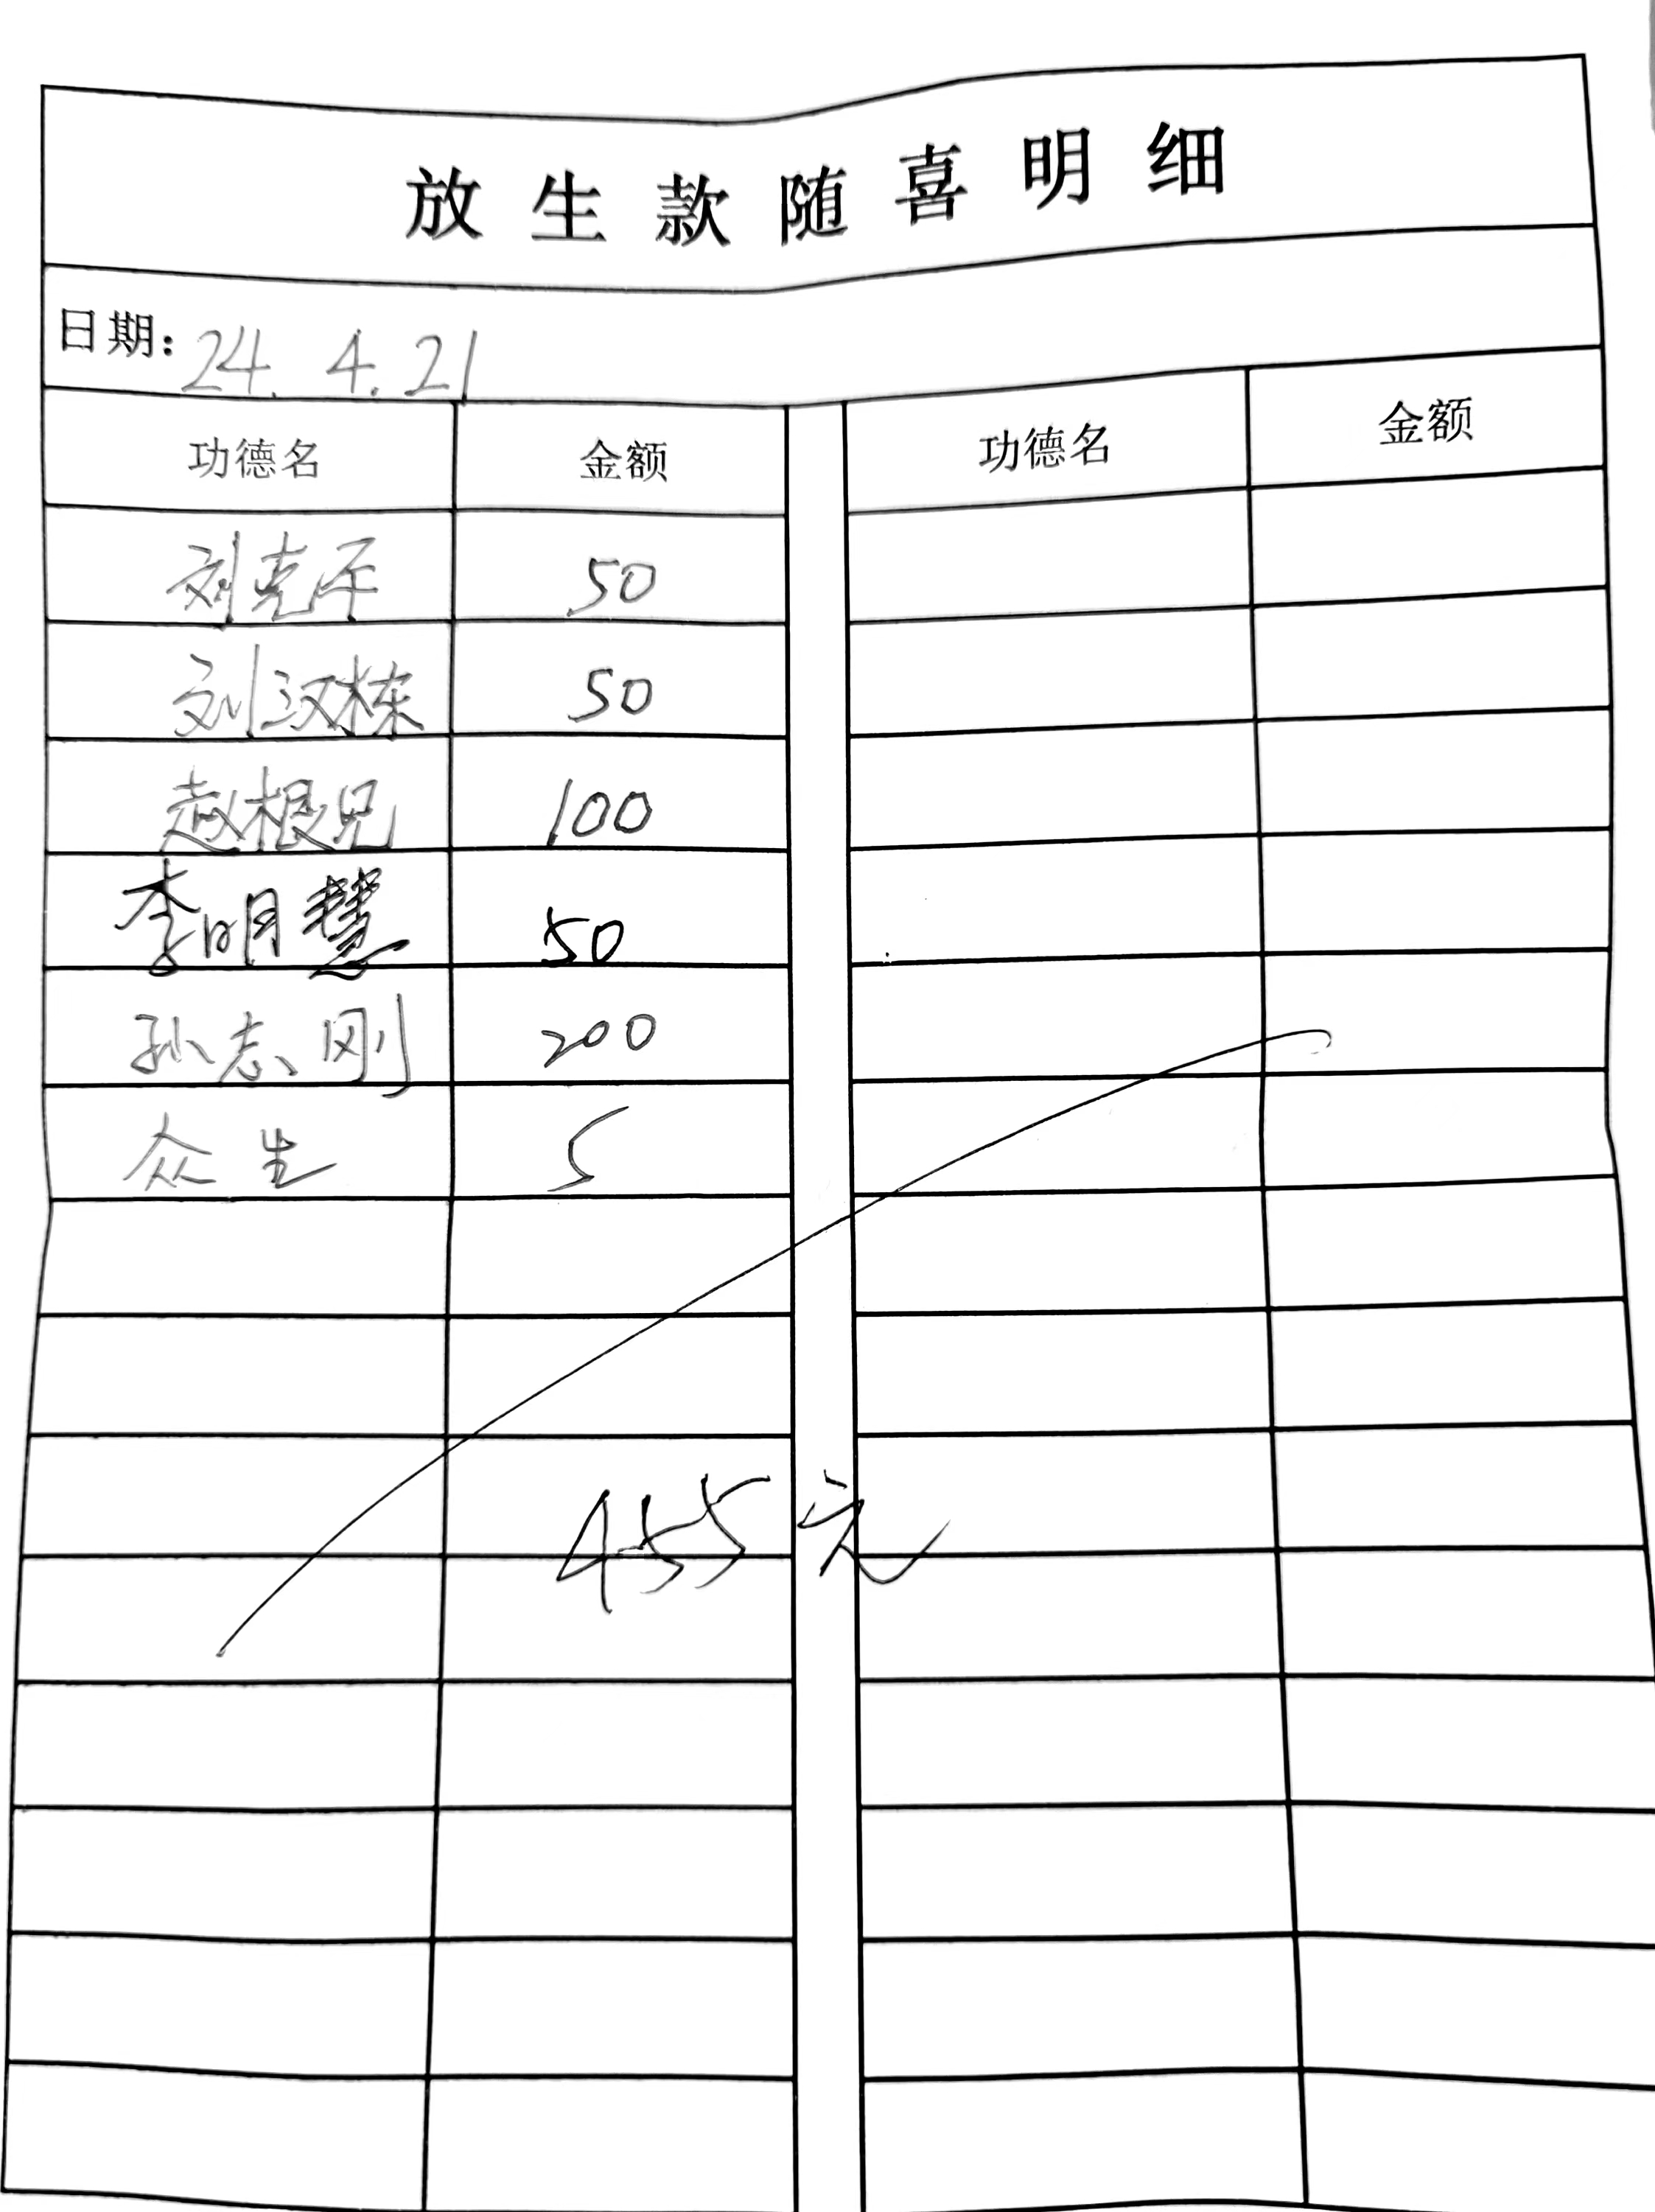 放生款随喜明细
日期：24.4.21
功德名 金额 功德名 金额
刘克平 50
刘汉栋 50
赵根兄 100
李明慧 50
孙志刚 200
众生 5
455元